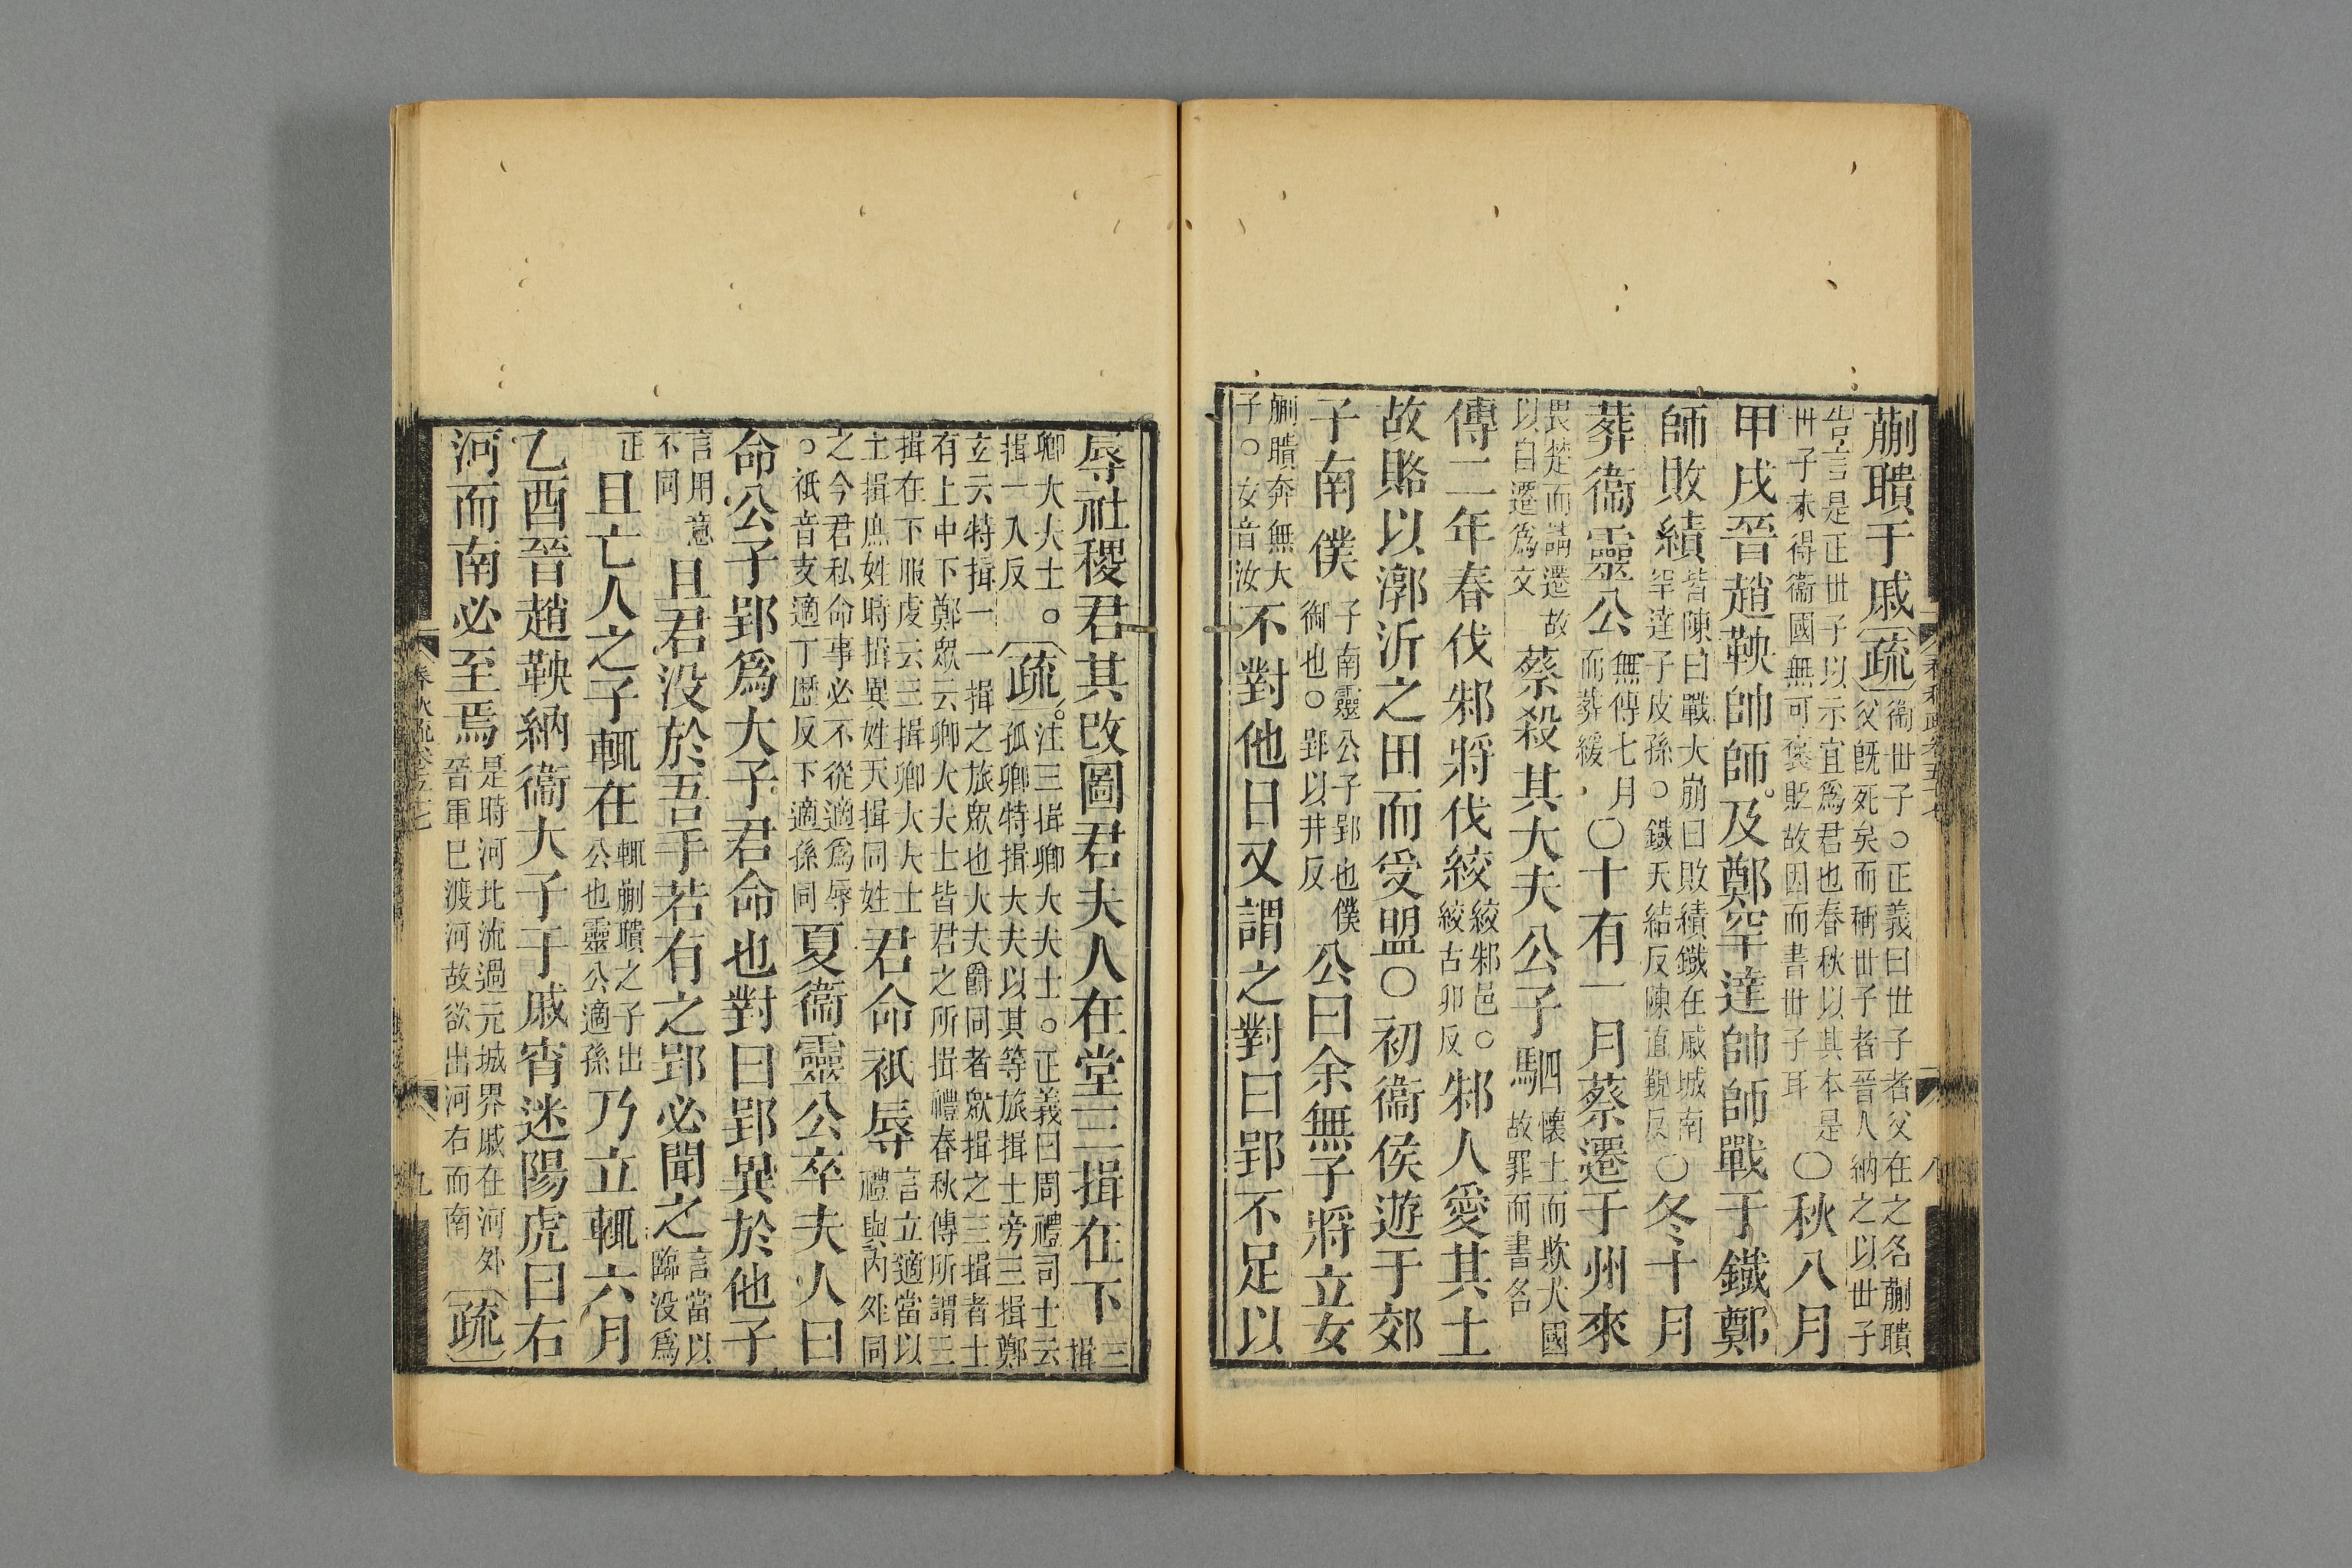 蒯聵于戚〔疏〕衞世子○正義曰世子者父在之名蒯聵
父既死矣而稱世子者晉人納之以世子
告言是正世子以示宜爲君也春秋以其本是
世子未得衞國無可褒貶故因而書世子耳
○秋八月
甲戌晉趙鞅帥師及鄭罕達帥師戰于鐵鄭
師敗績
皆陳曰戰大崩曰敗績鐵在戚城南
罕達子皮孫○鐵天結反陳直覲反
○冬十月
葬衞靈公
無傳七月
而葬緩
○十有一月蔡遷于州來
畏楚而請遷故
以自遷爲文
蔡殺其大夫公子駟
懷土而欺大國
故罪而書名
傳二年春伐邾將伐絞
絞邾邑○
絞古卯反
邾人愛其土
故賂以漷沂之田而受盟○初衞侯遊于郊
子南僕
子南靈公子郢也僕
御也○郢以井反
公曰余無子將立女
蒯聵奔無大
子○女音汝
不對他日又謂之對曰郢不足以
辱社稷君其改圖君夫人在堂三揖在下
三
揖
卿大夫士○〔疏〕注三揖卿大夫士○正義曰周禮司士云
揖一入反
孤卿特揖大夫以其等旅揖士旁三揖鄭
玄云特揖一一揖之旅眾也大夫爵同者眾揖之三揖者士
有上中下鄭眾云卿大夫士皆君之所揖禮春秋傳所謂三
揖在下服虔云三揖卿大夫士
土揖庶姓時揖異姓天揖同姓
君命祇辱
言立適當以
禮與內外同
之今君私命事必不從適爲辱
○祇音支適丁歷反下適孫同
夏衞靈公卒夫人曰
命公子郢爲大子君命也對曰郢異於他子
言用意
不同
且君没於吾手若有之郢必聞之
言當以
臨没爲
正
且亡人之子輒在
輒蒯聵之子出
公也靈公適孫
乃立輒六月
乙酉晉趙鞅納衞大子于戚宵迷陽虎曰右
河而南必至焉
是時河北流過元城界戚在河外
晉軍已渡河故欲出河右而南
〔疏〕
春秋疏卷五十七
八
春秋疏卷五十七
九